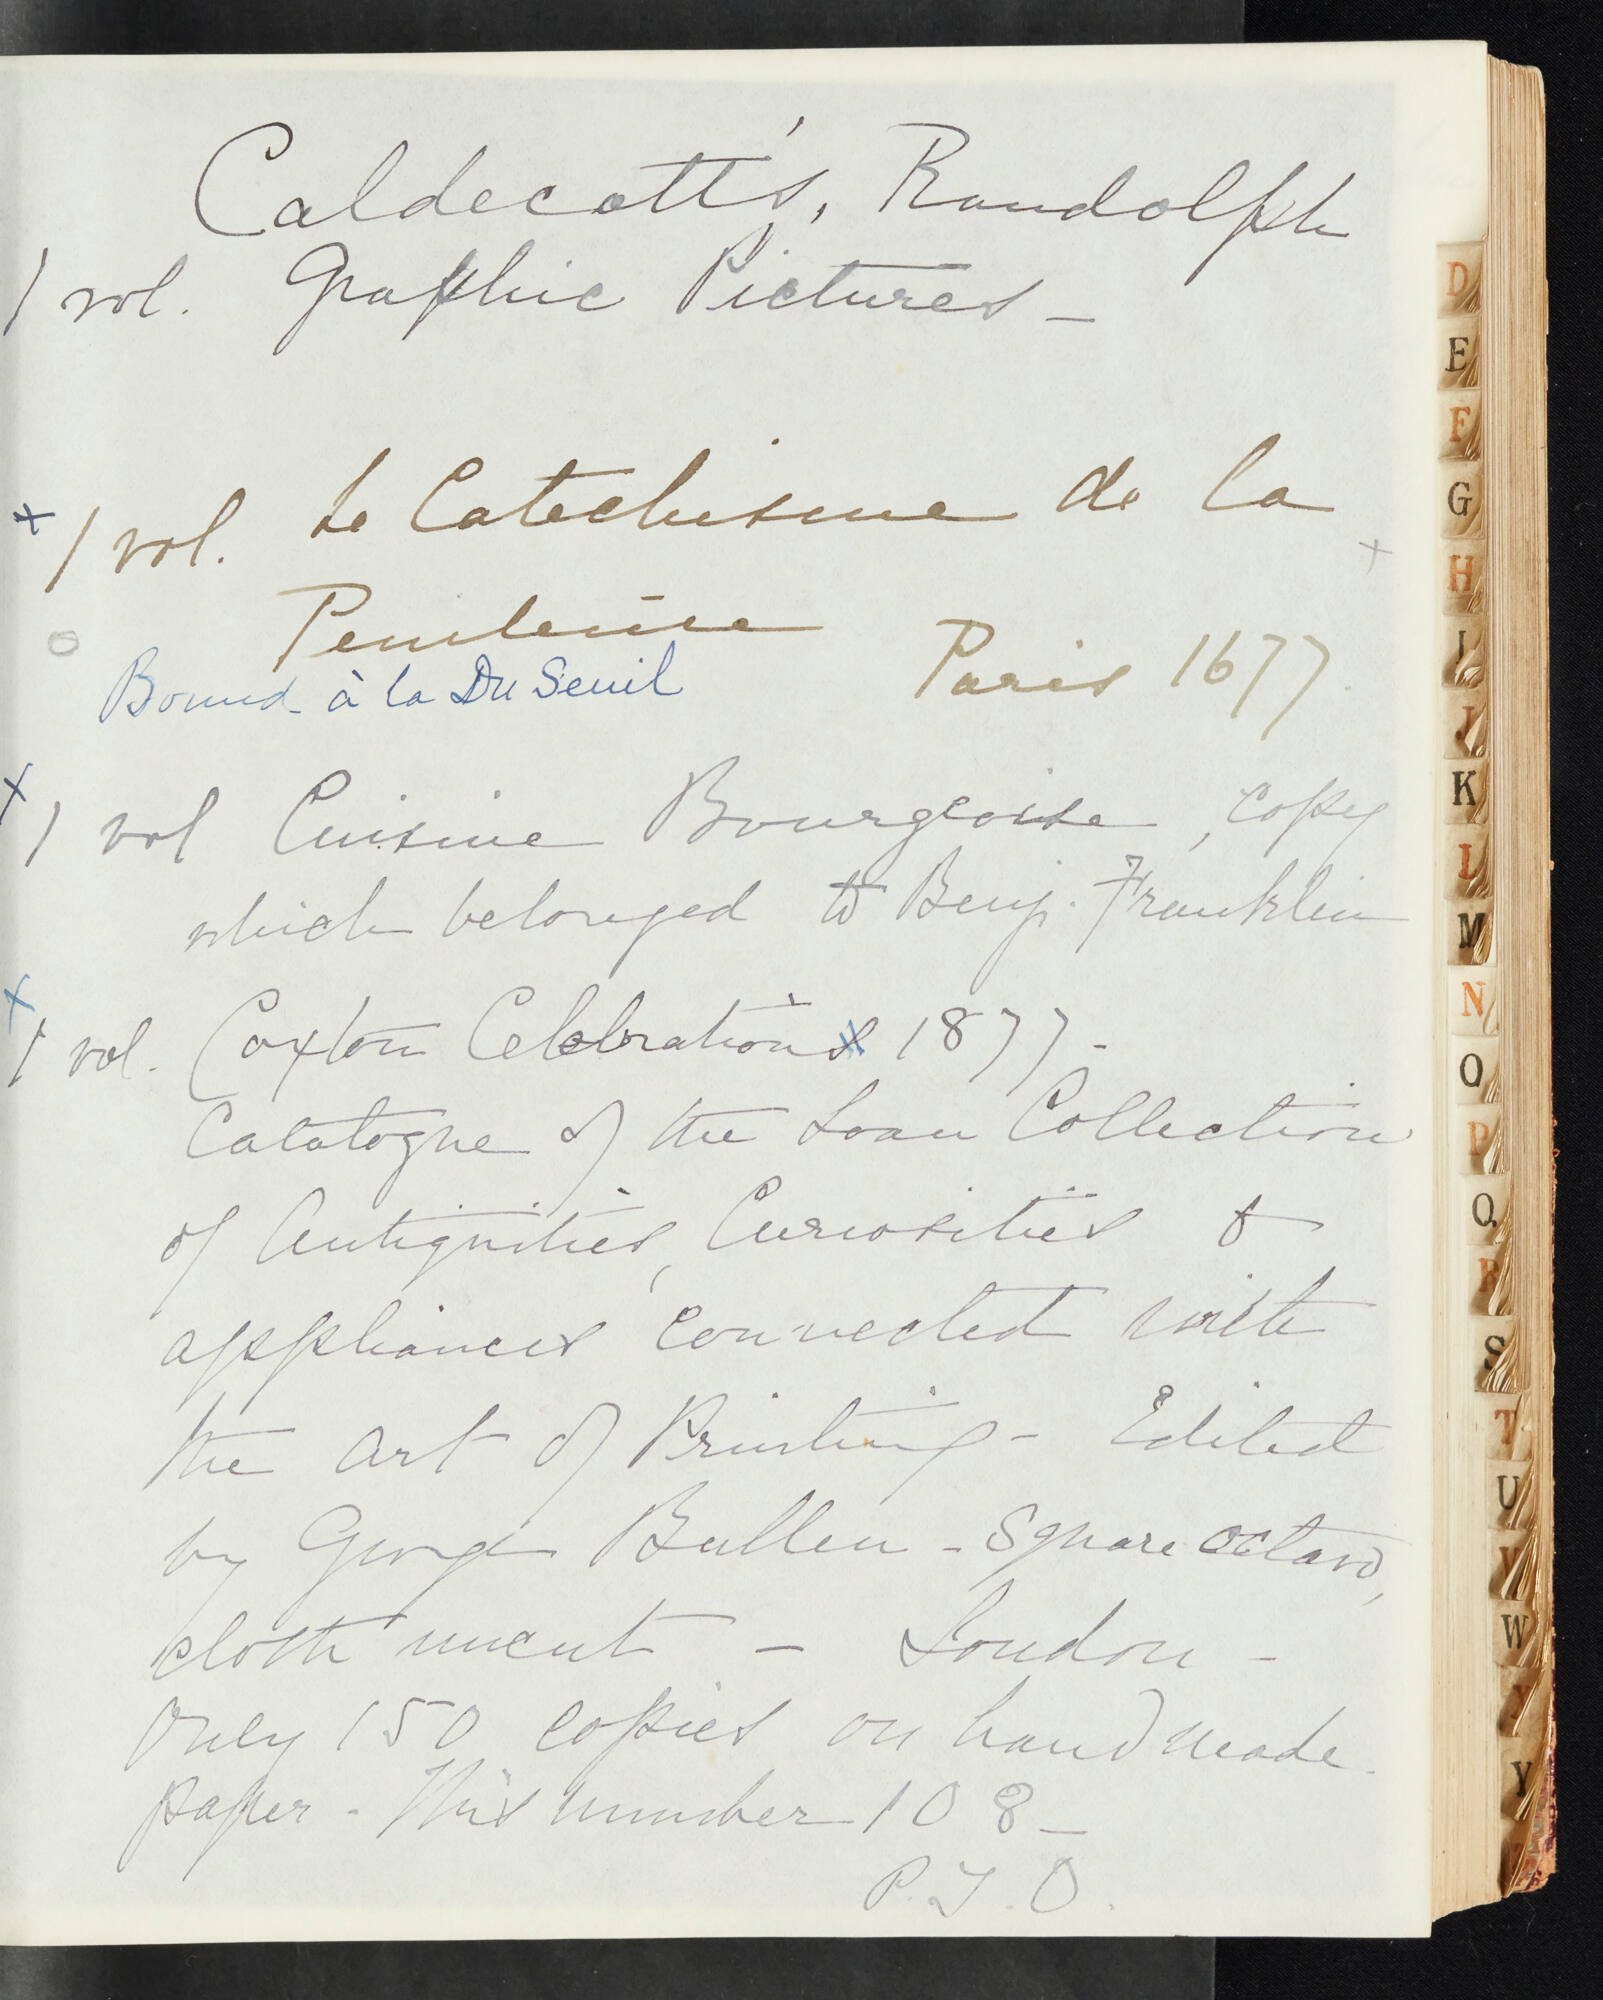 Caldecott's, Randolph
1 vol. Graphic Pictures –
+ 1 vol. Le Catechisme de la
+
Penitence
Paris 1677.
Bound à la Du Seuil
x 1 vol Cuisine Bourgeoise, copy
which belonged to Benj. Franklin
x 1 vol. Caxton Celebration 1877 –
Catalogue of the Loan Collection
of Antiquities, Curiosities &
appliances connected with
the art of Printing – Edited
by George Bullen – Square octavo,
cloth uncut – London –
Only 150 copies on hand made
paper – This number 108 –
P.T.O.
D
E
F
G
H
I
J
K
L
M
N
O
P
Q
R
S
T
U
V
W
Y
Y